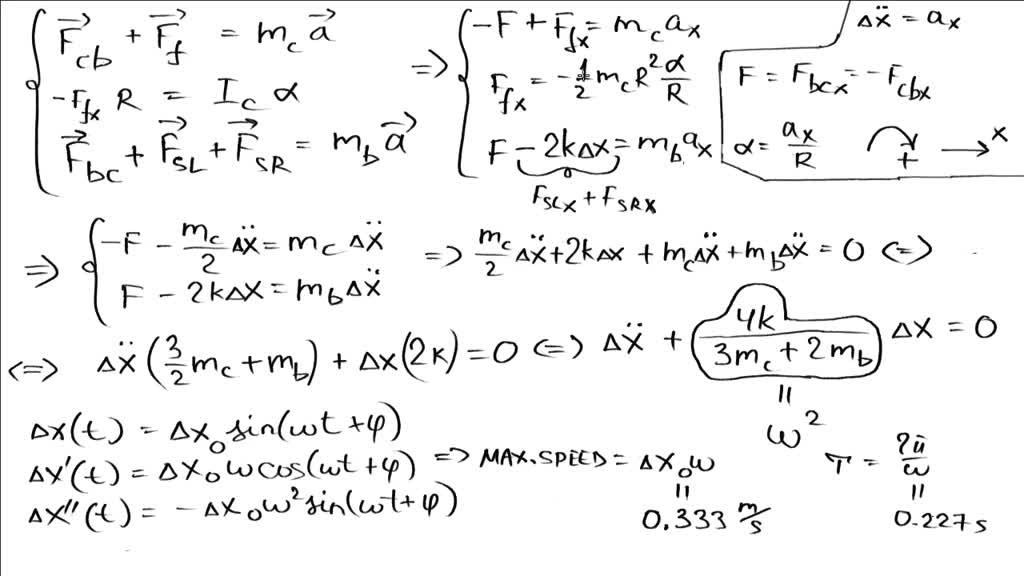 F⃗_cb + F⃗_f = m_c a⃗
-F_fx R = I_c α
F⃗_bc + F⃗_SL + F⃗_SR = m_b a⃗
=> -F + F_fx = m_c a_x
F_fx = -1/2 m_c R² α/R
F - 2kΔx = m_b a_x
F_SLx + F_SRx
Δẍ = a_x
F = F_bcx = -F_cbx
α = a_x/R + x
=> -F - m_c/2 Δẍ = m_c Δẍ
F - 2kΔx = m_b Δẍ
=> m_c/2 Δẍ + 2kΔx + m_c Δẍ + m_b Δẍ = 0 <=>
<=> Δẍ (3/2 m_c + m_b) + Δx (2k) = 0 <=> Δẍ + 4k/(3m_c + 2m_b) Δx = 0
= ω²
Δx(t) = Δx₀ sin(ωt + φ)
Δx'(t) = Δx₀ ω cos(ωt + φ) => MAX. SPEED = Δx₀ω
= 0.333 m/s
T = 2π/ω
= 0.227 s
Δx''(t) = -Δx₀ω² sin(ωt + φ)